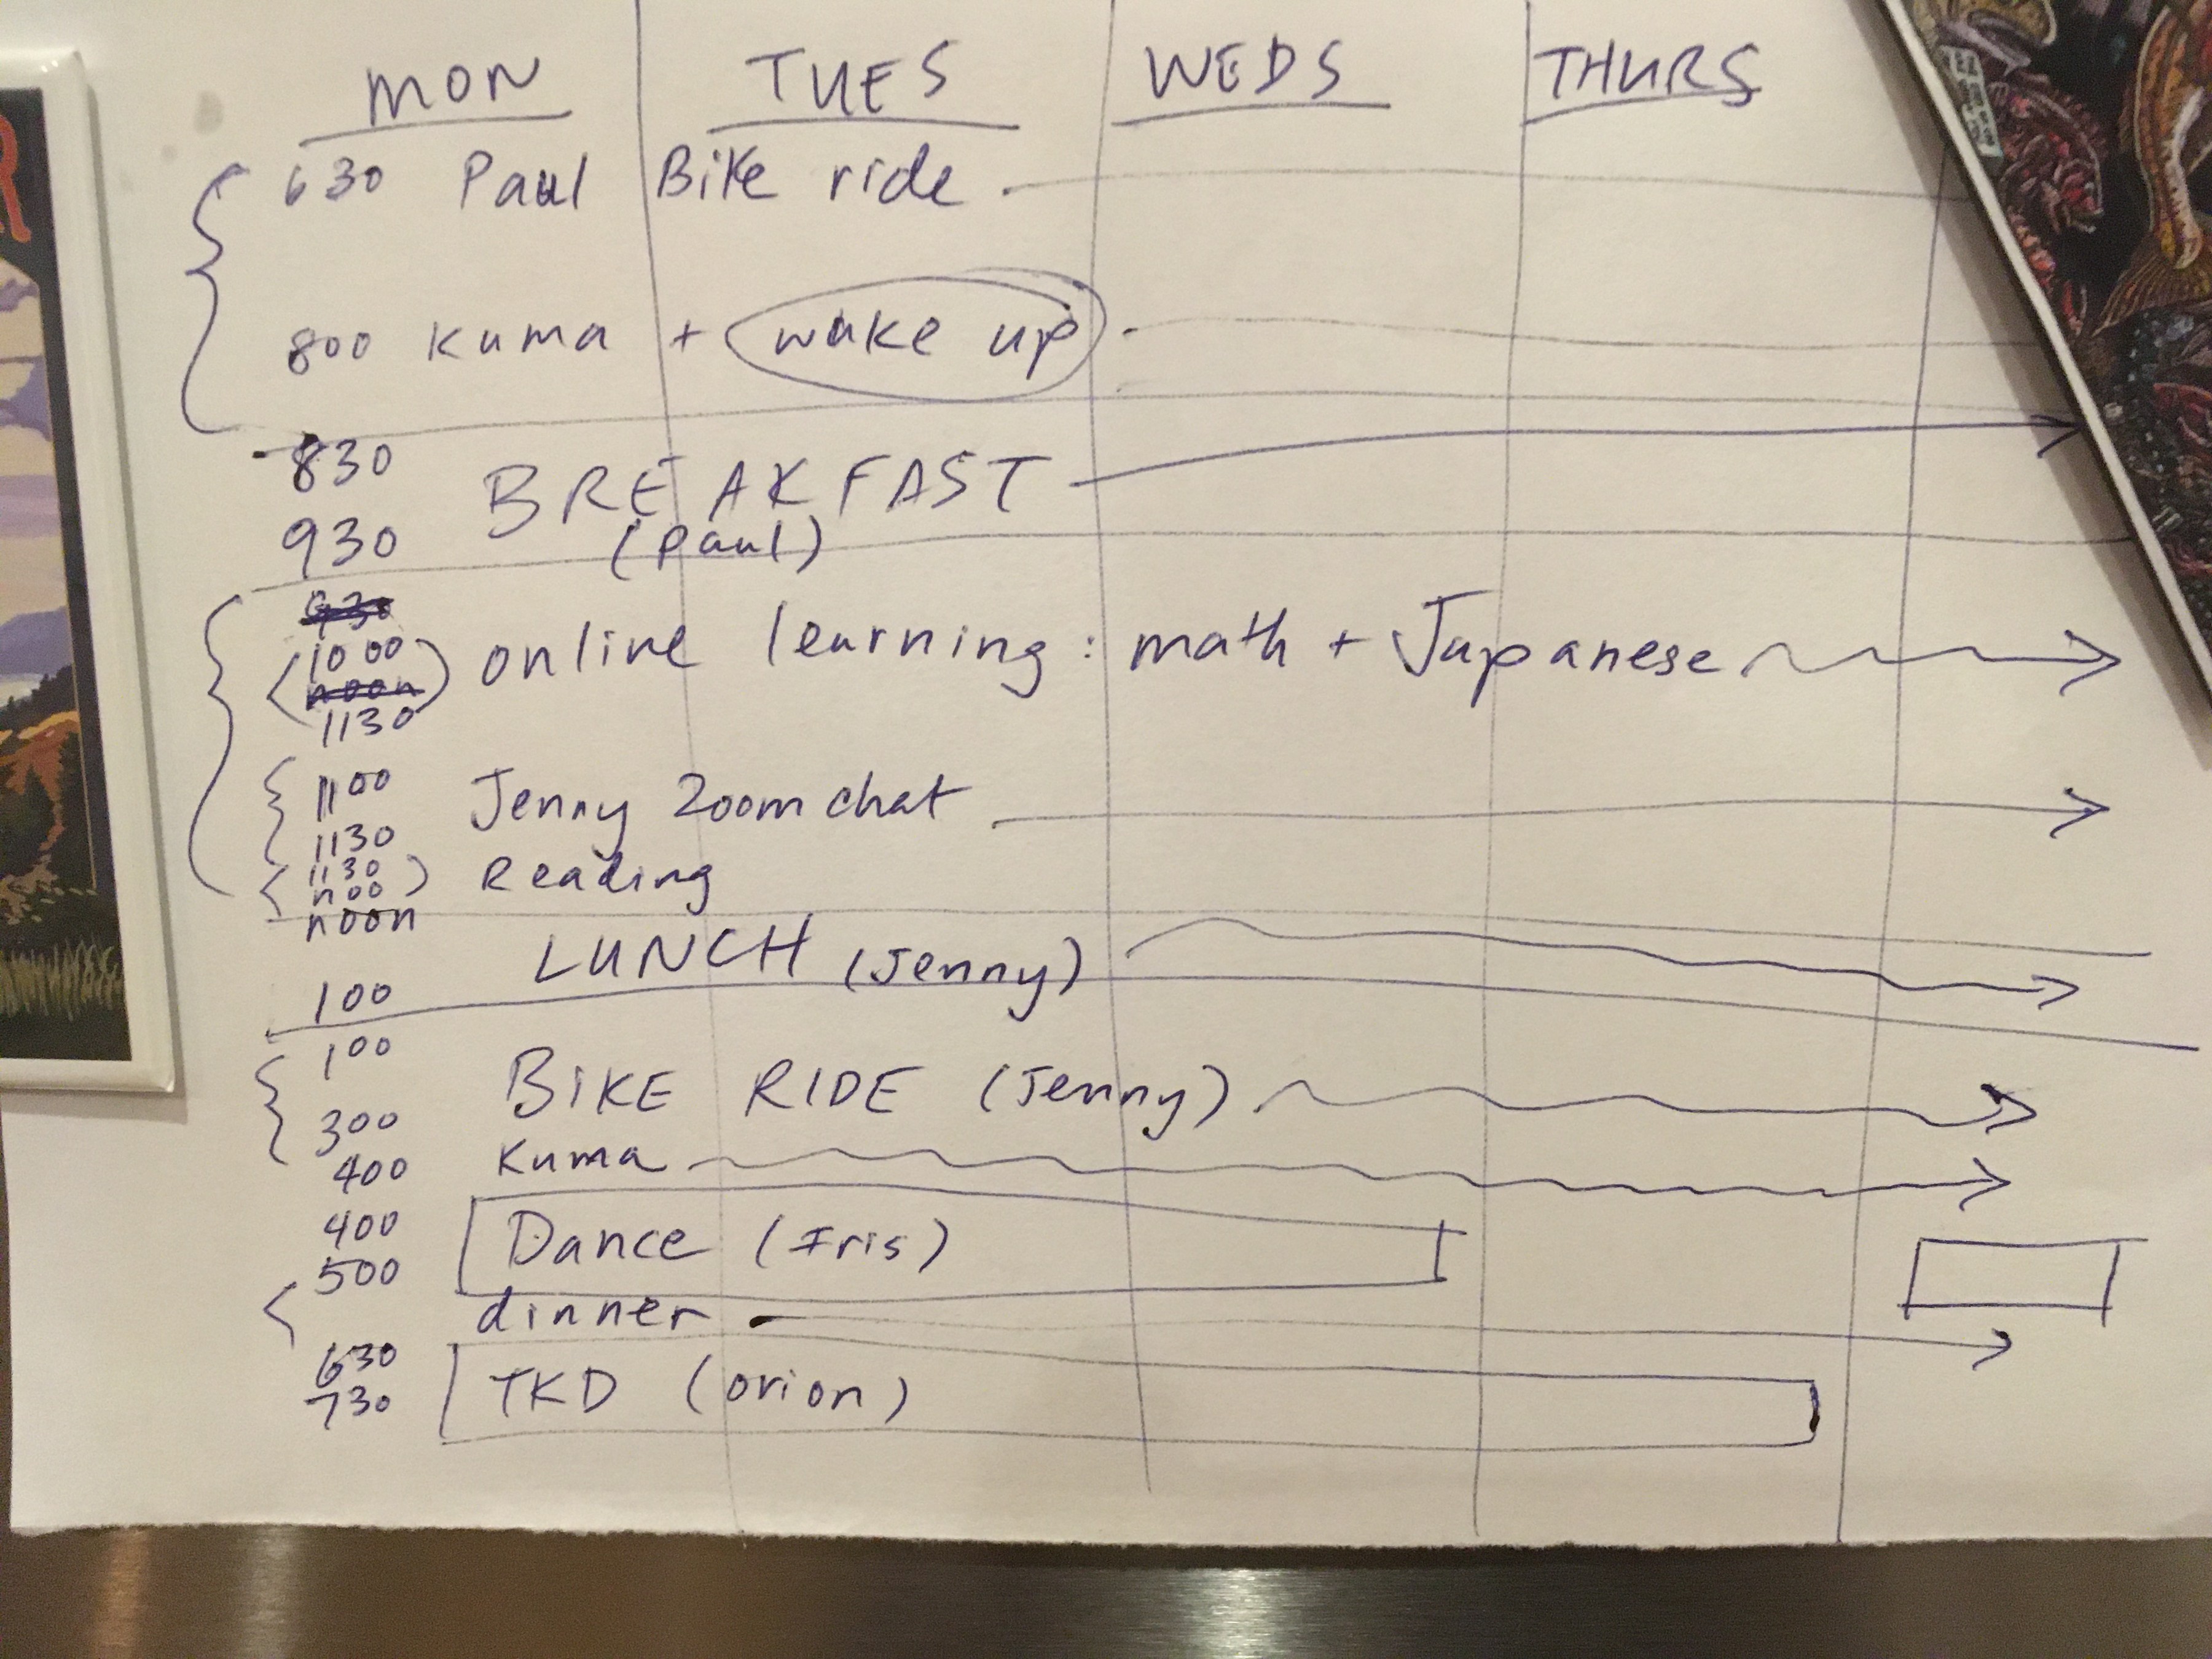 MON TUES WEDS THURS
630 Paul Bike ride
800 Kuma + wake up
830
BREAKFAST
930 (Paul)
930
1000 online learning: math + Japanese
noon
1130
1100 Jenny Zoom chat
1130
1130 Reading
noo
noon
LUNCH (Jenny)
100
100
BIKE RIDE (Jenny)
300
400 Kuma
400 Dance (Iris)
500
dinner
630
730 TKD (orion)